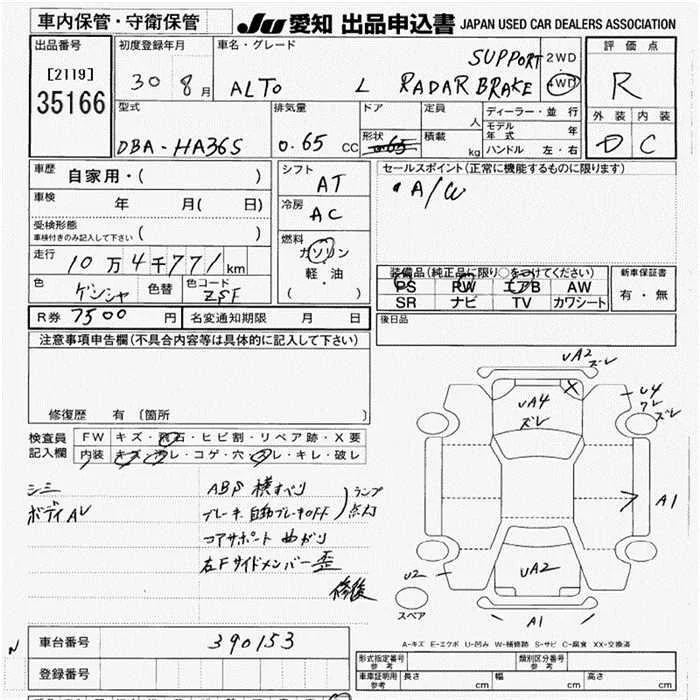 車内保管・守衛保管
JU 愛知 出品申込書 JAPAN USED CAR DEALERS ASSOCIATION
出品番号
[2119]
35166
初度登録年月
30 8月
車名・グレード
ALTO L SUPPORT RADAR BRAKE
2WD
4WD
評価点
R
外装 内装
D C
型式
DBA-HA36S
排気量
0.65 CC
ドア
形状
0.65
定員
人
積載
kg
ディーラー・並行
モデル年式 年
ハンドル 左・右
車歴
自家用・( )
車検
年 月( 日)
受検形態
車検付きのみ記入して下さい ( )
走行
10万4千771km
色
ゲンシャ
色替
色コード
ZSF
シフト
AT
冷房
AC
燃料
ガソリン
軽・油
( )
セールスポイント(正常に機能するものに限ります)
・A/W
装備品(純正品に限り○をつけてください)
PS PW エアB AW
SR ナビ TV カワシート
新車保証書
有・無
R券 7500 円
名変通知期限 月 日
後日品
注意事項申告欄(不具合内容等は具体的に記入して下さい)
修復歴 有 〔箇所
検査員
記入欄
FW キズ・飛石・ヒビ割・リペア跡・X要
内装 キズ・汚レ・コゲ・穴・スレ・キレ・破レ
シミ
ボディAU
ABS 横すべり
ブレーキ 自動ブレーキOFF
ランプ
点灯
コアサポート 曲がり
右Fサイドメンバー歪
修後
UA2
ズレ
UA4
ズレ
U4
ワレ
ズレ
A1
UA2
U2
A1
スペア
A-キズ E-エクボ U-凹み W-補修跡 S-サビ C-腐食 XX-交換済
N
車台番号
390153
登録番号
形式指定番号
参考
類別区分番号
参考
車庫証明用
参考
長さ cm
幅 cm
高さ cm